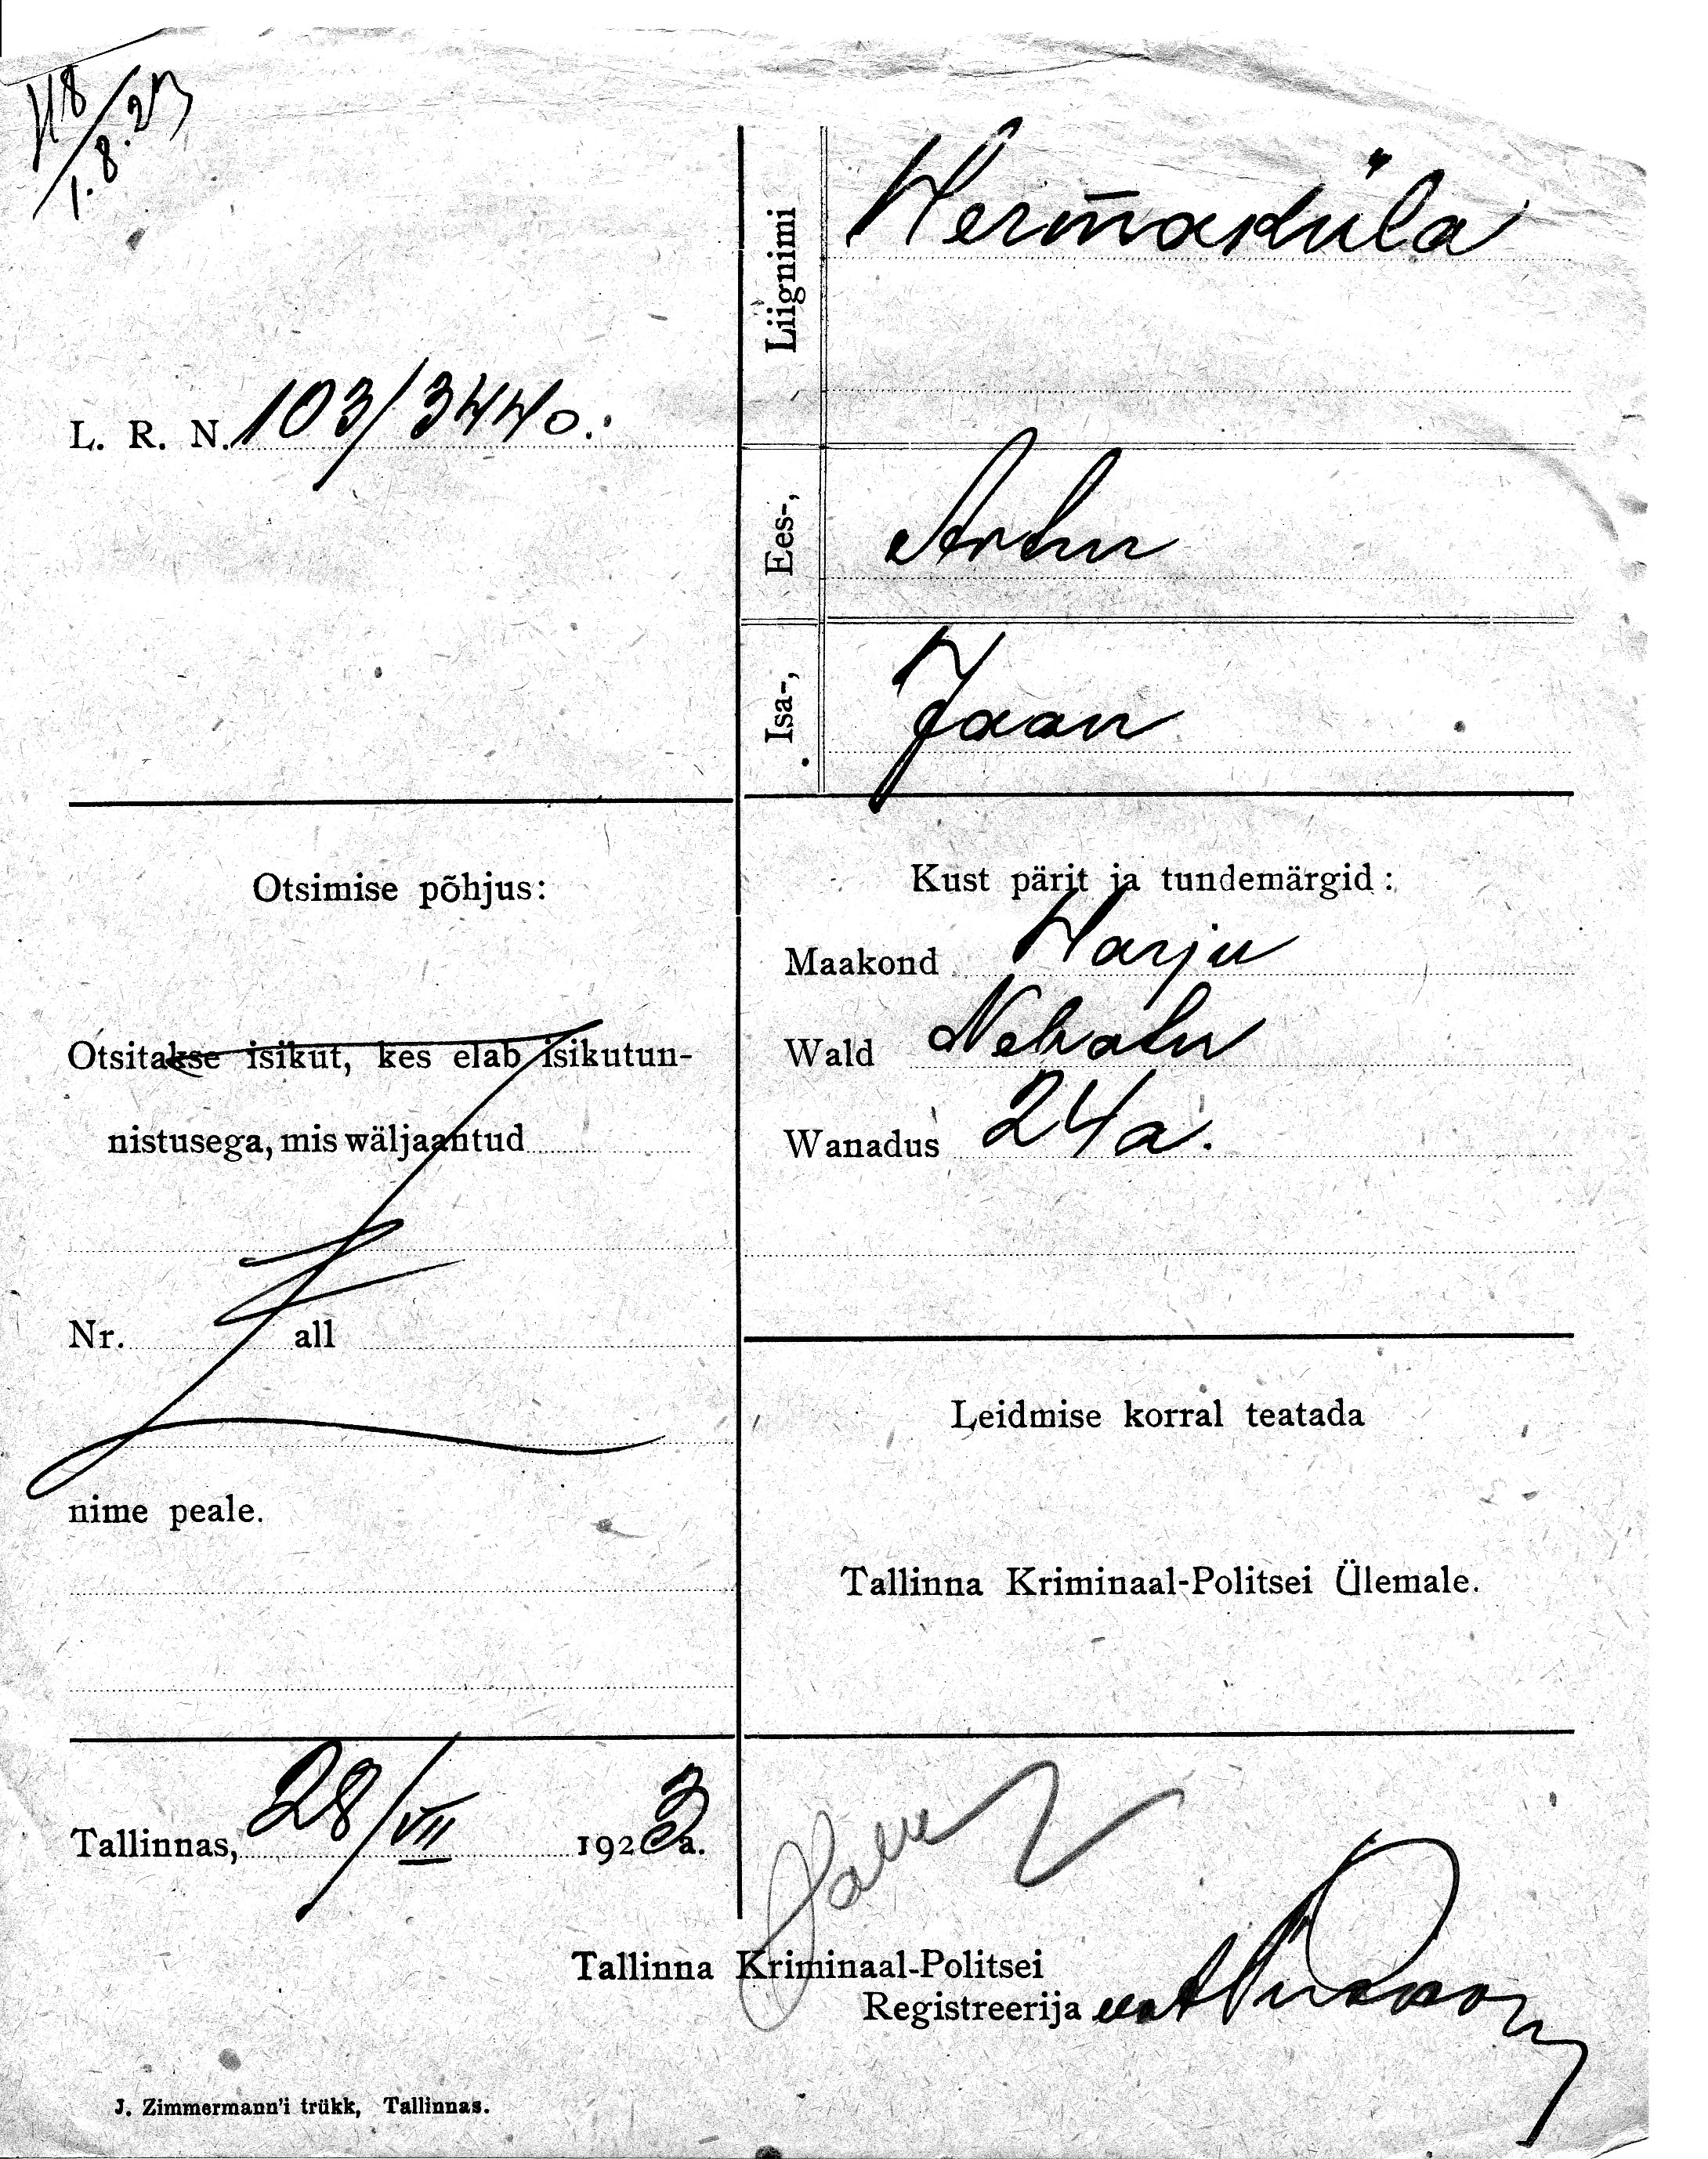 118
1.8.23
L. R. N. 103/3440.
Liignimi
Hermaküla
Ees-,
Artur
Isa-,
Jaan
Otsimise põhjus:
Otsitakse isikut, kes elab isikutun-
nistusega, mis wäljaantud
Nr. all
nime peale.
Tallinnas, 28/VII 1923 a.
Kust pärit ja tundemärgid:
Maakond Harju
Wald Nehatu
Wanadus 24 a.
Leidmise korral teatada
Tallinna Kriminaal-Politsei Ülemale.
Tallinna Kriminaal-Politsei
Registreerija
J. Zimmermann'i trükk, Tallinnas.